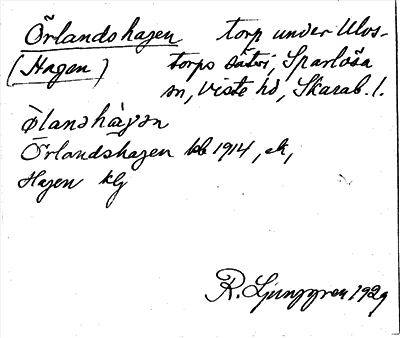 Örlandshagen torp under Ulvs-
(Hagen) torps säteri, Sparlösa
sn, Viste hd, Skarab. l.
ø̀lanshàgən
Örlandshagen kb 1914, ek,
Hagen kg
R. Ljunggren 1929